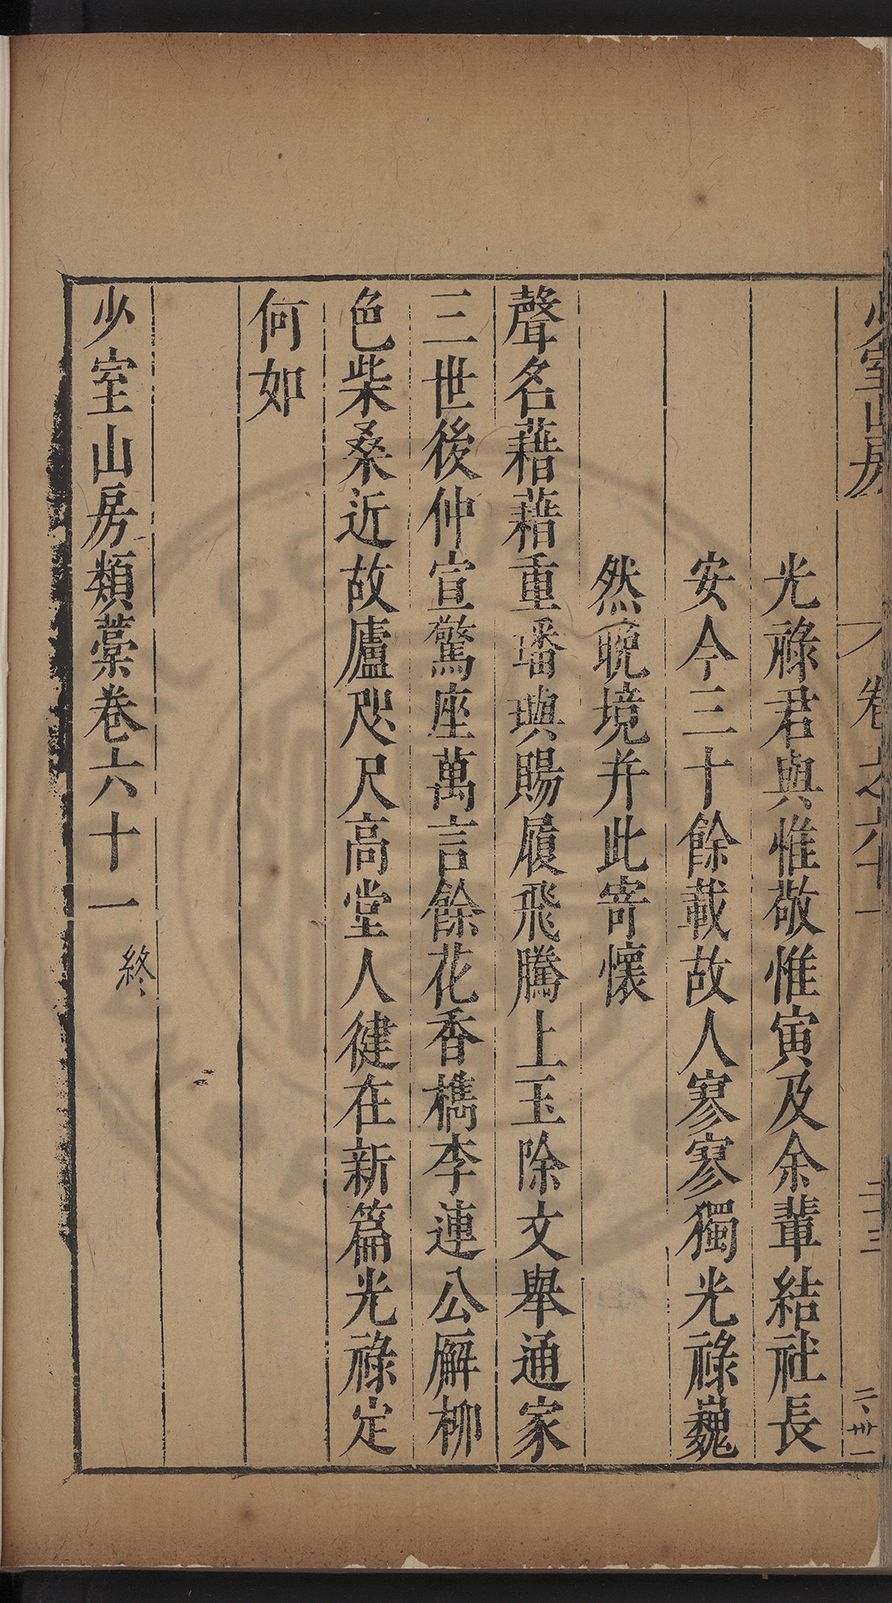 少室山房
卷之六十一
二十三
二、卅一
光祿君與惟敬惟寅及余輩結社長
安今三十餘載故人寥寥獨光祿巍
然晚境并此寄懷
聲名藉藉重璠璵賜履飛騰上玉除文舉通家
三世後仲宣驚座萬言餘花香檇李連公廨柳
色柴桑近故廬咫尺高堂人健在新篇光祿定
何如
少室山房類藁卷六十一
終